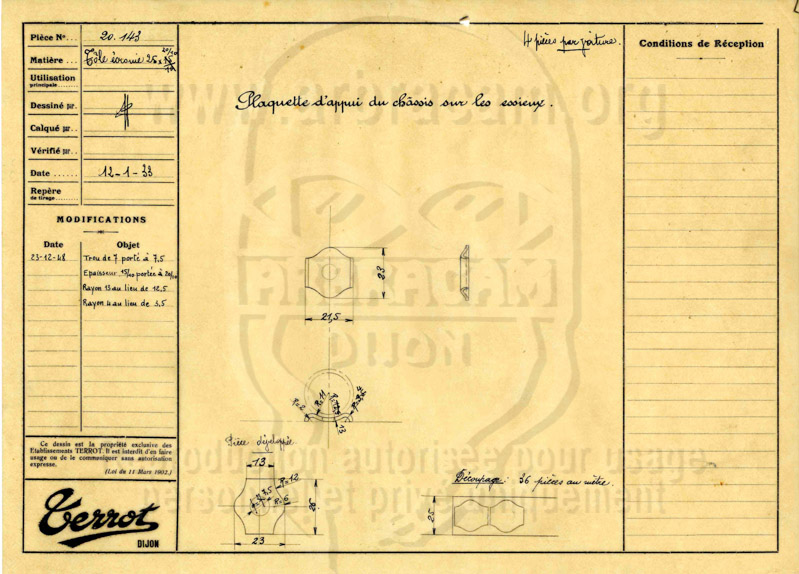 Pièce N°... 20.143
Matière ... Tôle écrouie 25 x 20/10
Utilisation
principale
Dessiné par
Calqué par
Vérifié par
Date ...... 12-1-33
Repère
de tirage
MODIFICATIONS
Date Objet
23-12-48 Trou de 7 porté à 7,5
Epaisseur 15/10 portée à 20/10
Rayon 13 au lieu de 12,5
Rayon 4 au lieu de 3,5
Ce dessin est la propriété exclusive des
Etablissements TERROT. Il est interdit d'en faire
usage ou de le communiquer sans autorisation
expresse.
(Loi du 11 Mars 1902.)
Terrot
DIJON
4 pièces par voiture.
Plaquette d'appui du châssis sur les essieux.
28
21,5
R=2
R=11
13
Pièce développée
13
R=12
R=6
23
Découpage : 36 pièces au mètre.
25
Conditions de Réception
www.arbracam.org
ARBRACAM
DIJON
reproduction autorisée pour usage
personnel et privé uniquement